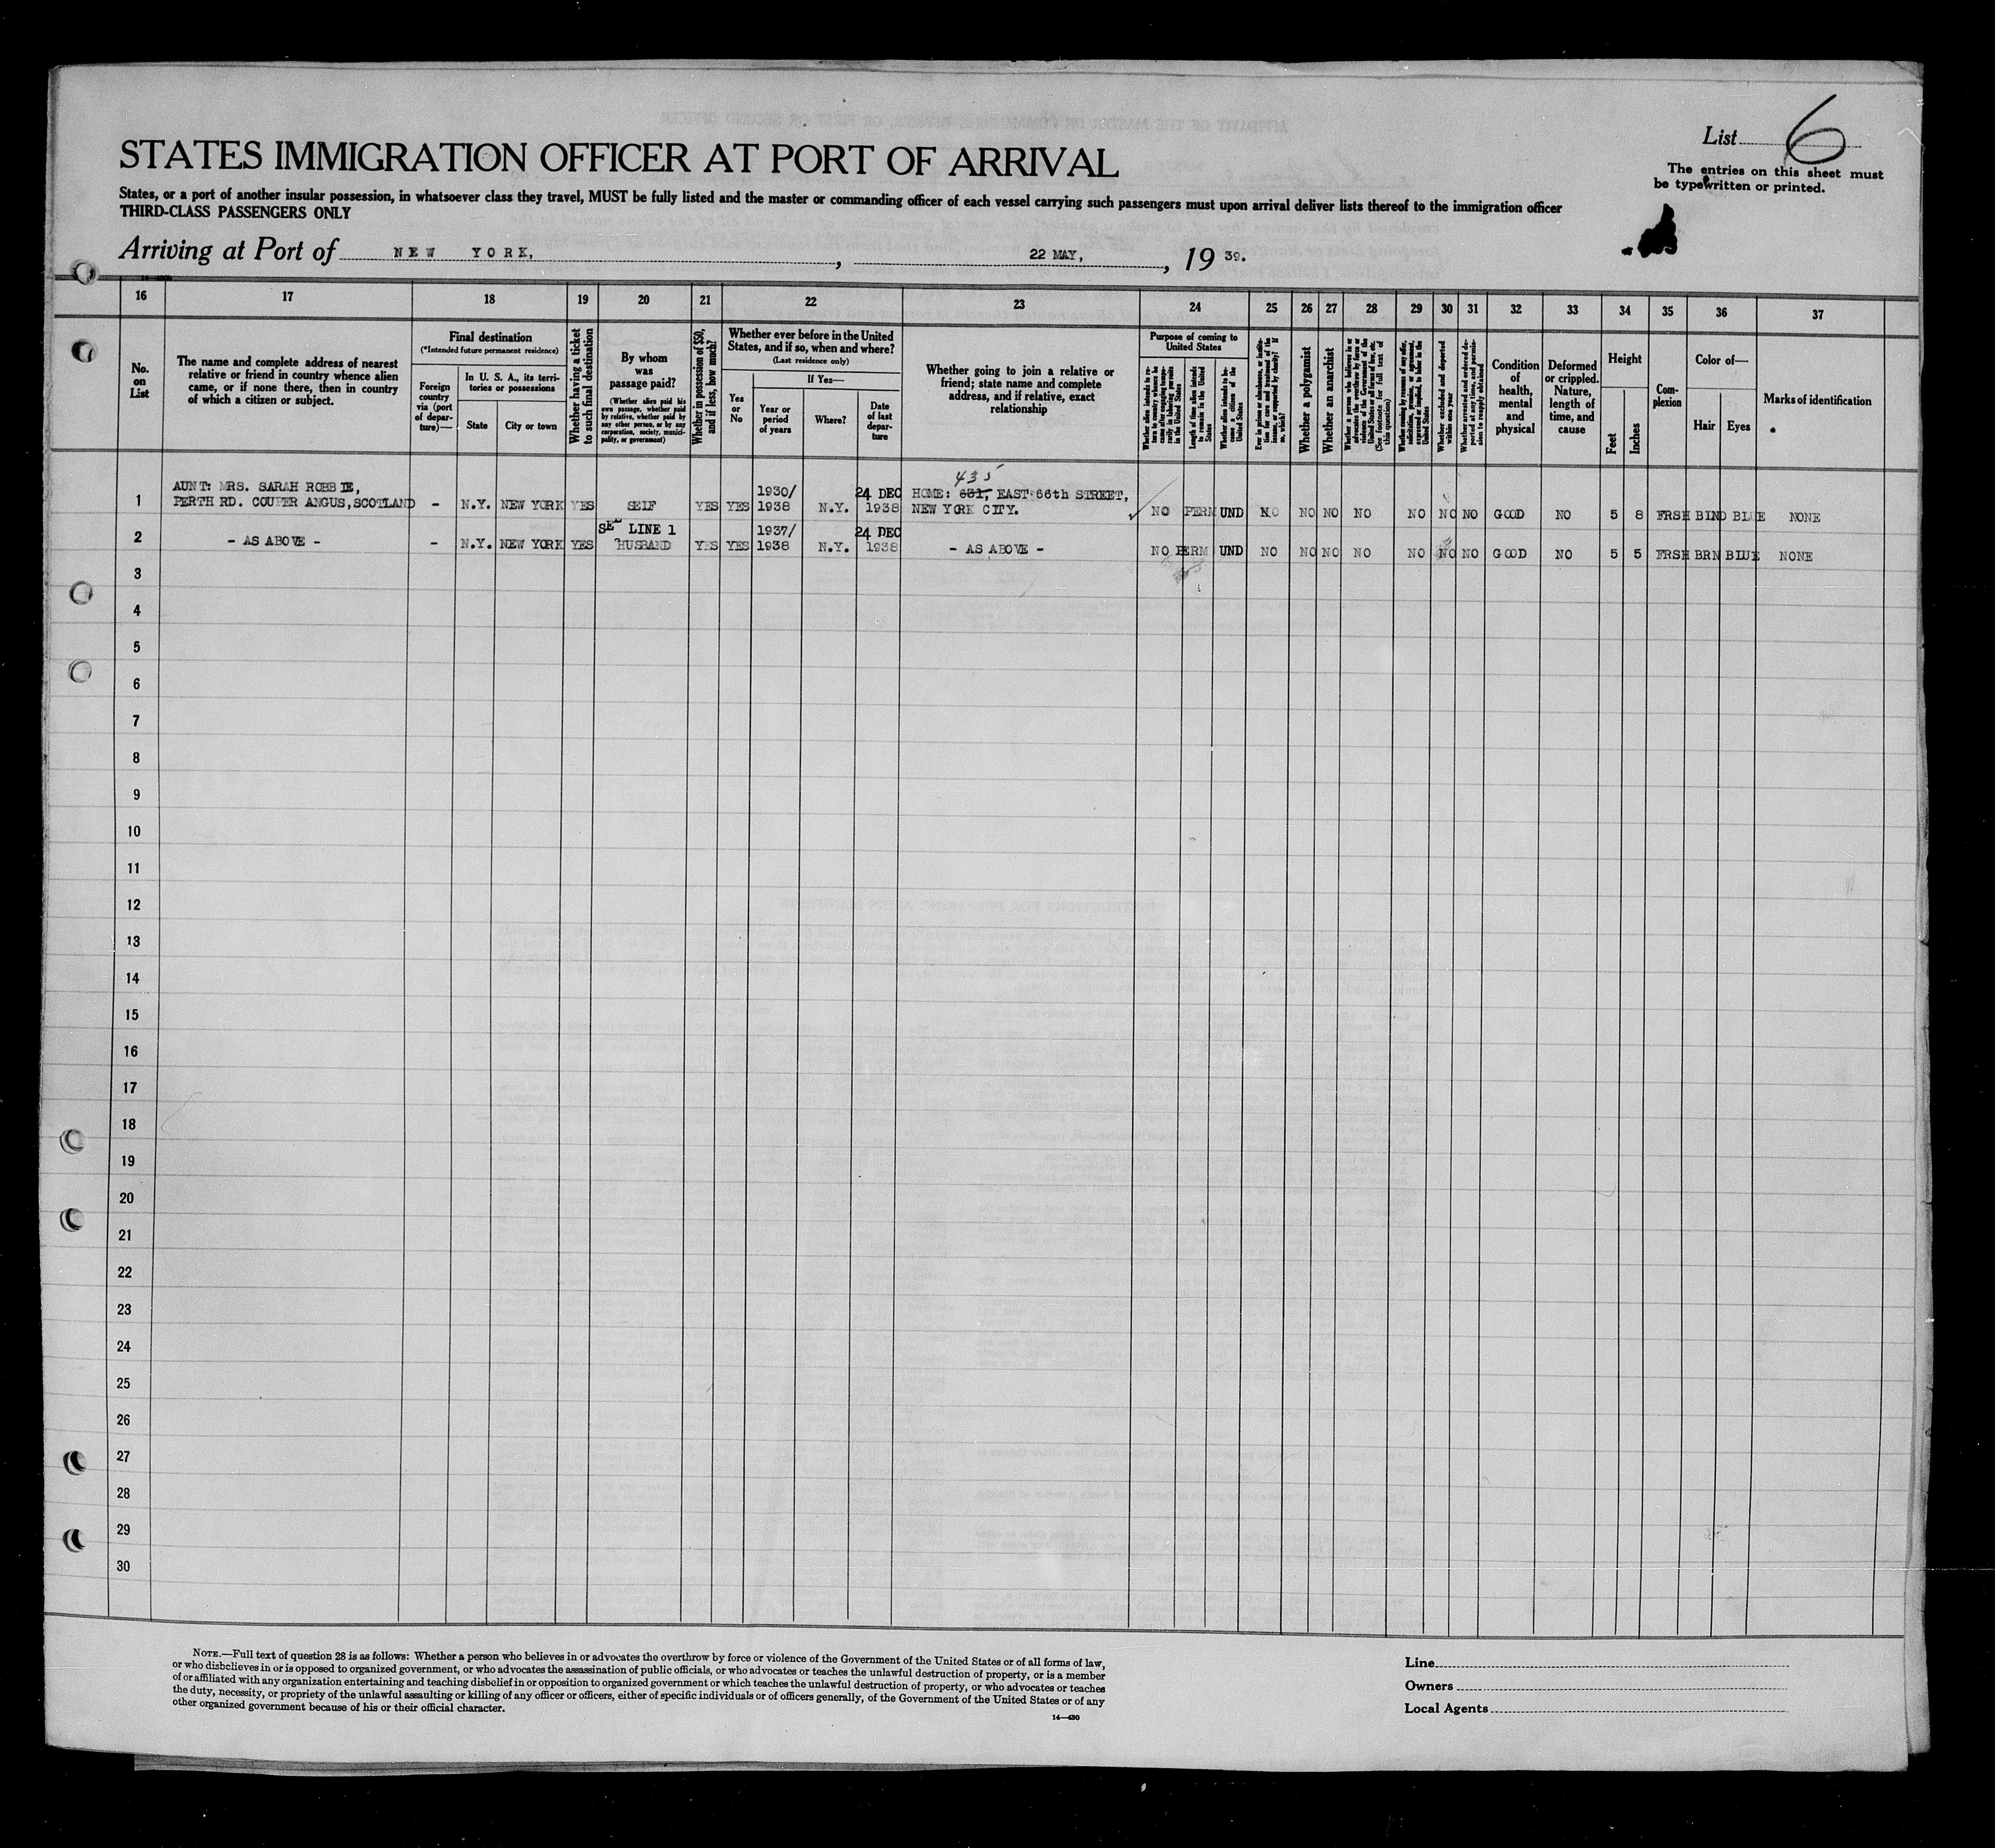 List 6
The entries on this sheet must
be typewritten or printed.
STATES IMMIGRATION OFFICER AT PORT OF ARRIVAL
States, or a port of another insular possession, in whatsoever class they travel, MUST be fully listed and the master or commanding officer of each vessel carrying such passengers must upon arrival deliver lists thereof to the immigration officer
THIRD-CLASS PASSENGERS ONLY
Arriving at Port of NEW YORK, , 22 MAY, , 19 39.
16 17 18 19 20 21 22 23 24 25 26 27 28 29 30 31 32 33 34 35 36 37
No.
on
List
The name and complete address of nearest
relative or friend in country whence alien
came, or if none there, then in country
of which a citizen or subject.
Final destination
(*Intended future permanent residence)
Foreign
country
via (port
of depar-
ture)—
In U. S. A., its terri-
tories or possessions
State
City or town
Whether having a ticket
to such final destination
By whom
was
passage paid?
(Whether alien paid his
own passage, whether paid
by relative, whether paid by
any other person, or by any
corporation, society, munici-
pality, or government)
Whether in possession of $50,
and if less, how much?
Whether ever before in the United
States, and if so, when and where?
(Last residence only)
Yes
or
No
If Yes—
Year or
period
of years
Where?
Date
of last
depar-
ture
Whether going to join a relative or
friend; state name and complete
address, and if relative, exact
relationship
Purpose of coming to
United States
Whether alien intends to re-
turn to country whence he
came after engaging tempo-
rarily in laboring pursuits
in the United States
Length of time alien intends
to remain in the United
States
Whether alien intends to be-
come a citizen of the
United States
Whether a polygamist
Whether an anarchist
(See footnote for full text of
this question)
Whether excluded and deported
within one year
Condition
of
health,
mental
and
physical
Deformed
or crippled.
Nature,
length of
time, and
cause
Height
Feet
Inches
Com-
plexion
Color of—
Hair
Eyes
Marks of identification
435
1 AUNT: MRS. SARAH ROBBIE,
PERTH RD. COUPER ANGUS, SCOTLAND - N.Y. NEW YORK YES SELF YES YES 1930/
1938 N.Y. 24 DEC
1938 HOME: 631, EAST 66th STREET,
NEW YORK CITY. NO PERM UND NO NO NO NO NO NO NO GOOD NO 5 8 FRSH BLND BLUE NONE
2 - AS ABOVE - - N.Y. NEW YORK YES SEE LINE 1
HUSBAND YES YES 1937/
1938 N.Y. 24 DEC
1938 - AS ABOVE - NO PERM UND NO NO NO NO NO NO NO GOOD NO 5 5 FRSH BRN BLUE NONE
3
4
5
6
7
8
9
10
11
12
13
14
15
16
17
18
19
20
21
22
23
24
25
26
27
28
29
30
NOTE.—Full text of question 28 is as follows: Whether a person who believes in or advocates the overthrow by force or violence of the Government of the United States or of all forms of law,
or who disbelieves in or is opposed to organized government, or who advocates the assassination of public officials, or who advocates or teaches the unlawful destruction of property, or is a member
of or affiliated with any organization entertaining and teaching disbelief in or opposition to organized government or which teaches the unlawful destruction of property, or who advocates or teaches
the duty, necessity, or propriety of the unlawful assaulting or killing of any officer or officers, either of specific individuals or of officers generally, of the Government of the United States or of any
other organized government because of his or their official character.
14—430
Line
Owners
Local Agents